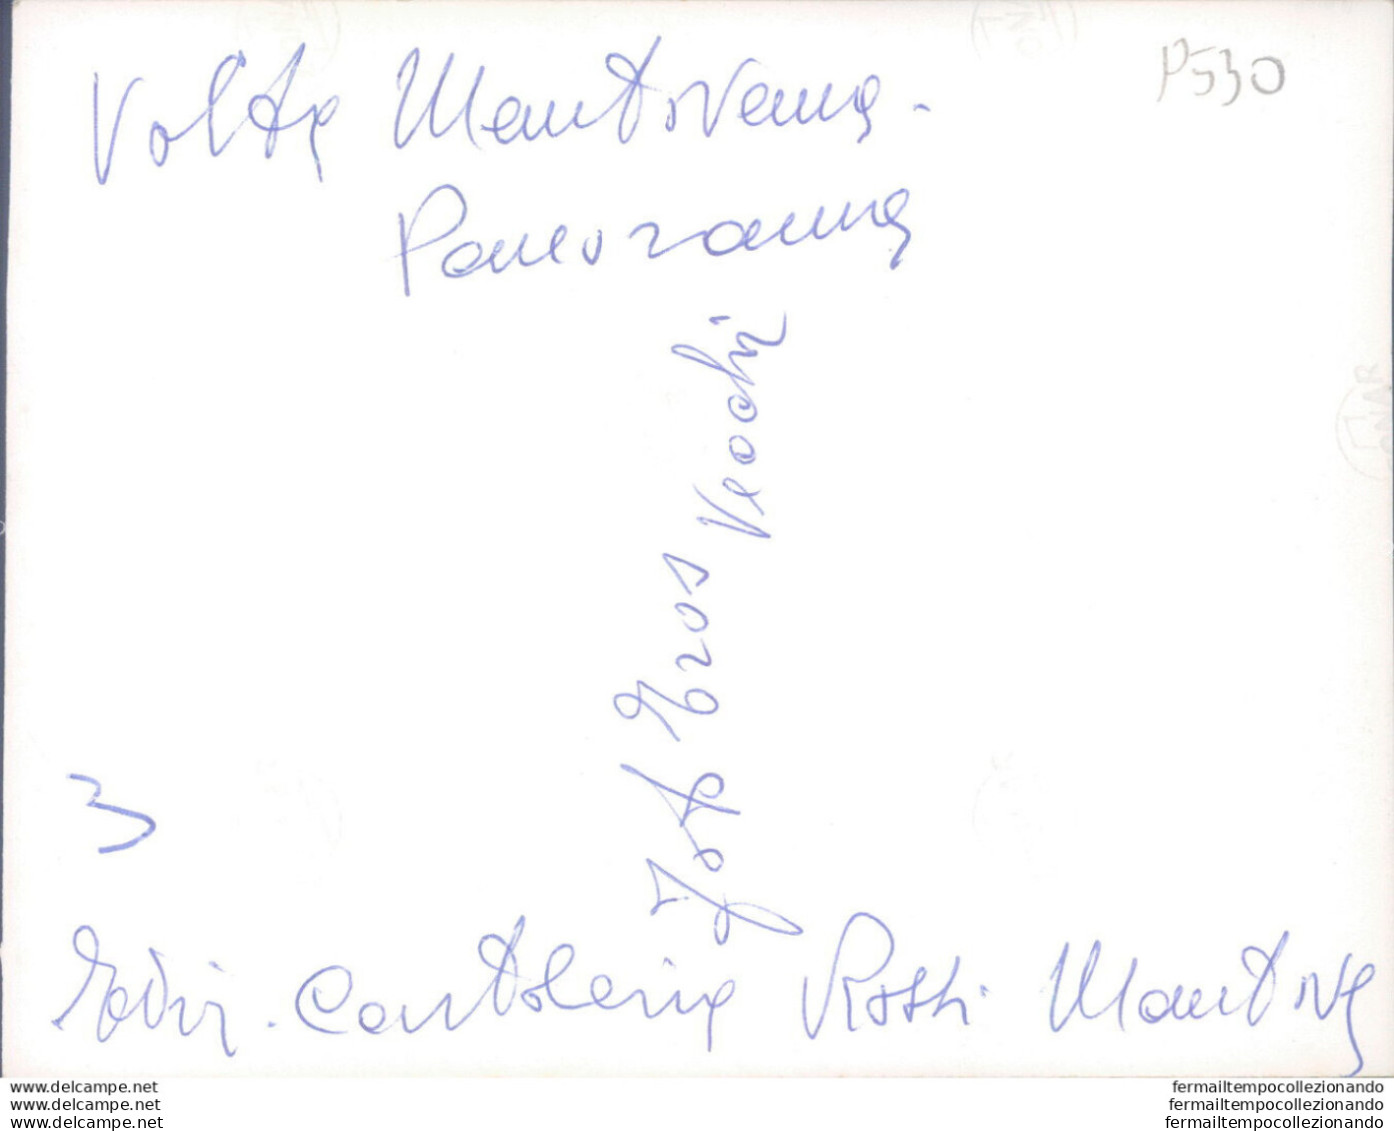 P530
Volta Mantovana -
Panorama
Foto Eros Vecchi
3
Ediz. Cartoleria Rossi Mantova
www.delcampe.net
www.delcampe.net
www.delcampe.net
fermailtempocollezionando
fermailtempocollezionando
fermailtempocollezionando